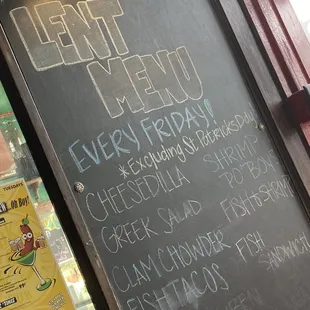 LENT
MENU
EVERY FRIDAY!
*Excluding St. Patricks Day
CHEESEDILLA
GREEK SALAD
CLAM CHOWDER
FISH TACOS
SHRIMP
PO' BOYS
FISH & SHRIMP
FISH
SANDWICH
TUESDAYS